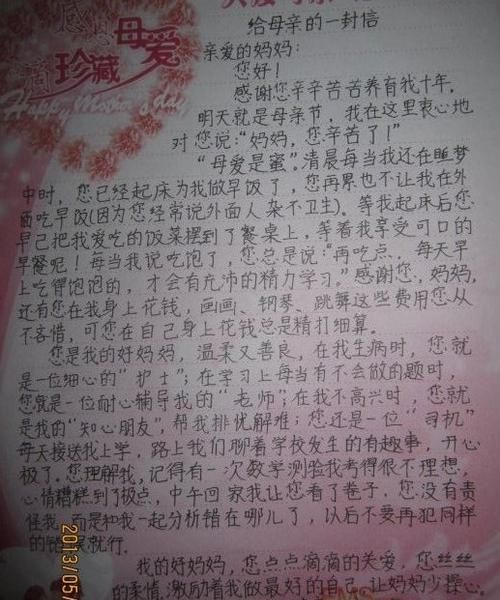 感恩母爱
珍藏
Happy Mother's day
给母亲的一封信
亲爱的妈妈:
您好!
感谢您辛辛苦苦养育我十年。
明天就是母亲节,我在这里衷心地
对您说:“妈妈,您辛苦了!”
“母爱是蜜”。清晨每当我还在睡梦
中时,您已经起床为我做早饭了,您再累也不让我在外
面吃早饭(因为您经常说外面人杂不卫生)。等我起床后您
早已把我爱吃的饭菜摆到了餐桌上,等着我享受可口的
早餐呢!每当我说吃饱了,您总是说:“再吃点,每天早
上吃得饱饱的,才会有充沛的精力学习。”感谢您,妈妈,
还有您在我身上花钱,画画、钢琴、跳舞这些费用您从
不吝惜,可您在自己身上花钱总是精打细算。
您是我的好妈妈,温柔又善良,在我生病时,您就
是一位细心的“护士”;在学习上每当有不会做的题时,
您就是一位耐心辅导我的“老师”;在我不高兴时,您就
是我的“知心朋友”,帮我排忧解难;您还是一位“司机”
每天接送我上学,路上我们聊着学校发生的有趣事,开心
极了。您理解我,记得有一次数学测验我考得很不理想,
心情糟糕到了极点,中午回家我让您看了卷子,您没有责
怪我,而是和我一起分析错在哪儿了,以后不要再犯同样
的错误就行。
我的好妈妈,您点点滴滴的关爱,您丝丝
的柔情,激励着我做最好的自己,让妈妈少操心。
2013/05/